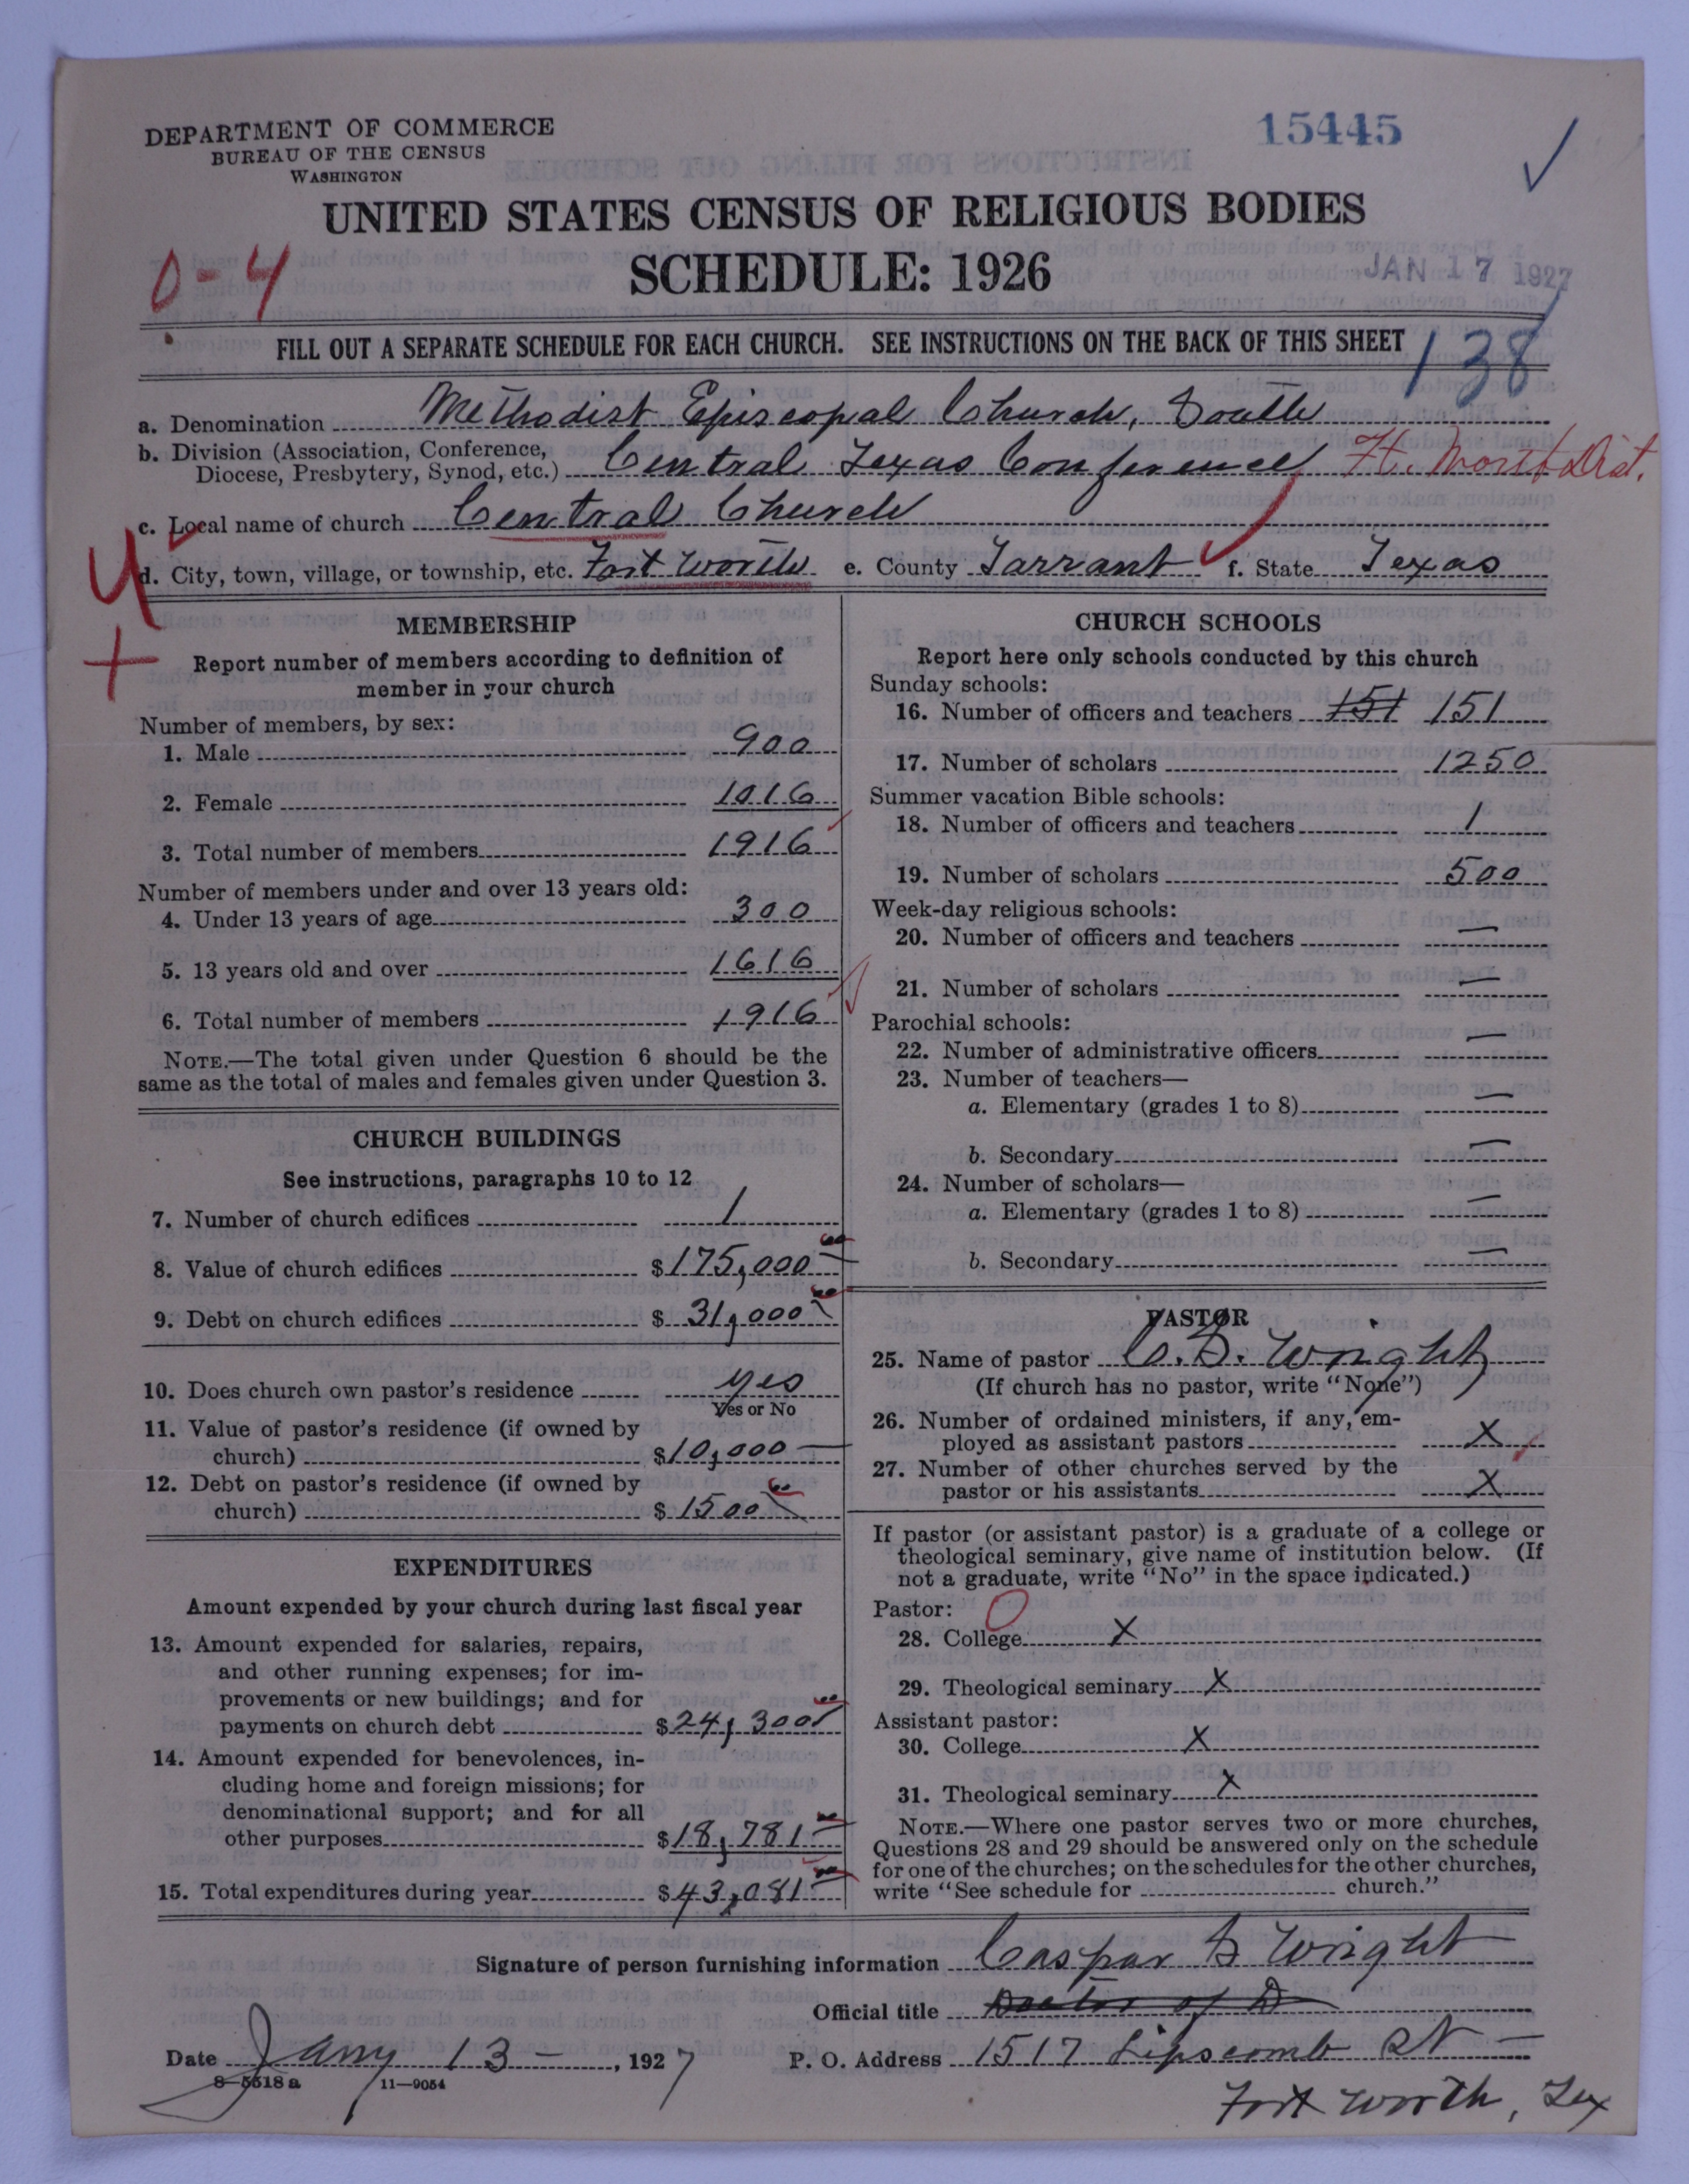 DEPARTMENT OF COMMERCE
BUREAU OF THE CENSUS
WASHINGTON
15445
UNITED STATES CENSUS OF RELIGIOUS BODIES
0-4
SCHEDULE: 1926
JAN 17 1927
FILL OUT A SEPARATE SCHEDULE FOR EACH CHURCH. SEE INSTRUCTIONS ON THE BACK OF THIS SHEET
138
a. Denomination Methodist Episcopal Church, South
b. Division (Association, Conference,
Diocese, Presbytery, Synod, etc.) Central Texas Conference Ft. Worth Dist.
c. Local name of church Central Church
d. City, town, village, or township, etc. Fort Worth e. County Tarrant f. State Texas
MEMBERSHIP
Report number of members according to definition of
member in your church
Number of members, by sex:
1. Male 900
2. Female 1016
3. Total number of members 1916
Number of members under and over 13 years old:
4. Under 13 years of age 300
5. 13 years old and over 1616
6. Total number of members 1916
NOTE.—The total given under Question 6 should be the
same as the total of males and females given under Question 3.
CHURCH BUILDINGS
See instructions, paragraphs 10 to 12
7. Number of church edifices 1
8. Value of church edifices $175,000
9. Debt on church edifices $31,000
10. Does church own pastor's residence yes
Yes or No
11. Value of pastor's residence (if owned by
church) $10,000
12. Debt on pastor's residence (if owned by
church) $1500
EXPENDITURES
Amount expended by your church during last fiscal year
13. Amount expended for salaries, repairs,
and other running expenses; for im-
provements or new buildings; and for
payments on church debt $24,300
14. Amount expended for benevolences, in-
cluding home and foreign missions; for
denominational support; and for all
other purposes $18,781
15. Total expenditures during year $43,081
CHURCH SCHOOLS
Report here only schools conducted by this church
Sunday schools:
16. Number of officers and teachers 151 151
17. Number of scholars 1250
Summer vacation Bible schools:
18. Number of officers and teachers 1
19. Number of scholars 500
Week-day religious schools:
20. Number of officers and teachers —
21. Number of scholars —
Parochial schools:
22. Number of administrative officers —
23. Number of teachers—
a. Elementary (grades 1 to 8) —
b. Secondary —
24. Number of scholars—
a. Elementary (grades 1 to 8) —
b. Secondary —
PASTOR
25. Name of pastor C. S. Wright
(If church has no pastor, write "None")
26. Number of ordained ministers, if any, em-
ployed as assistant pastors X
27. Number of other churches served by the
pastor or his assistants X
If pastor (or assistant pastor) is a graduate of a college or
theological seminary, give name of institution below. (If
not a graduate, write "No" in the space indicated.)
Pastor: 0
28. College X
29. Theological seminary X
Assistant pastor:
30. College X
31. Theological seminary X
NOTE.—Where one pastor serves two or more churches,
Questions 28 and 29 should be answered only on the schedule
for one of the churches; on the schedules for the other churches,
write "See schedule for church."
Signature of person furnishing information Caspar S Wright
Official title Doctor of D
Date Jany 13 — , 1927 P. O. Address 1517 Lipscomb St —
8-5518 a 11-9054
Fort Worth, Tex